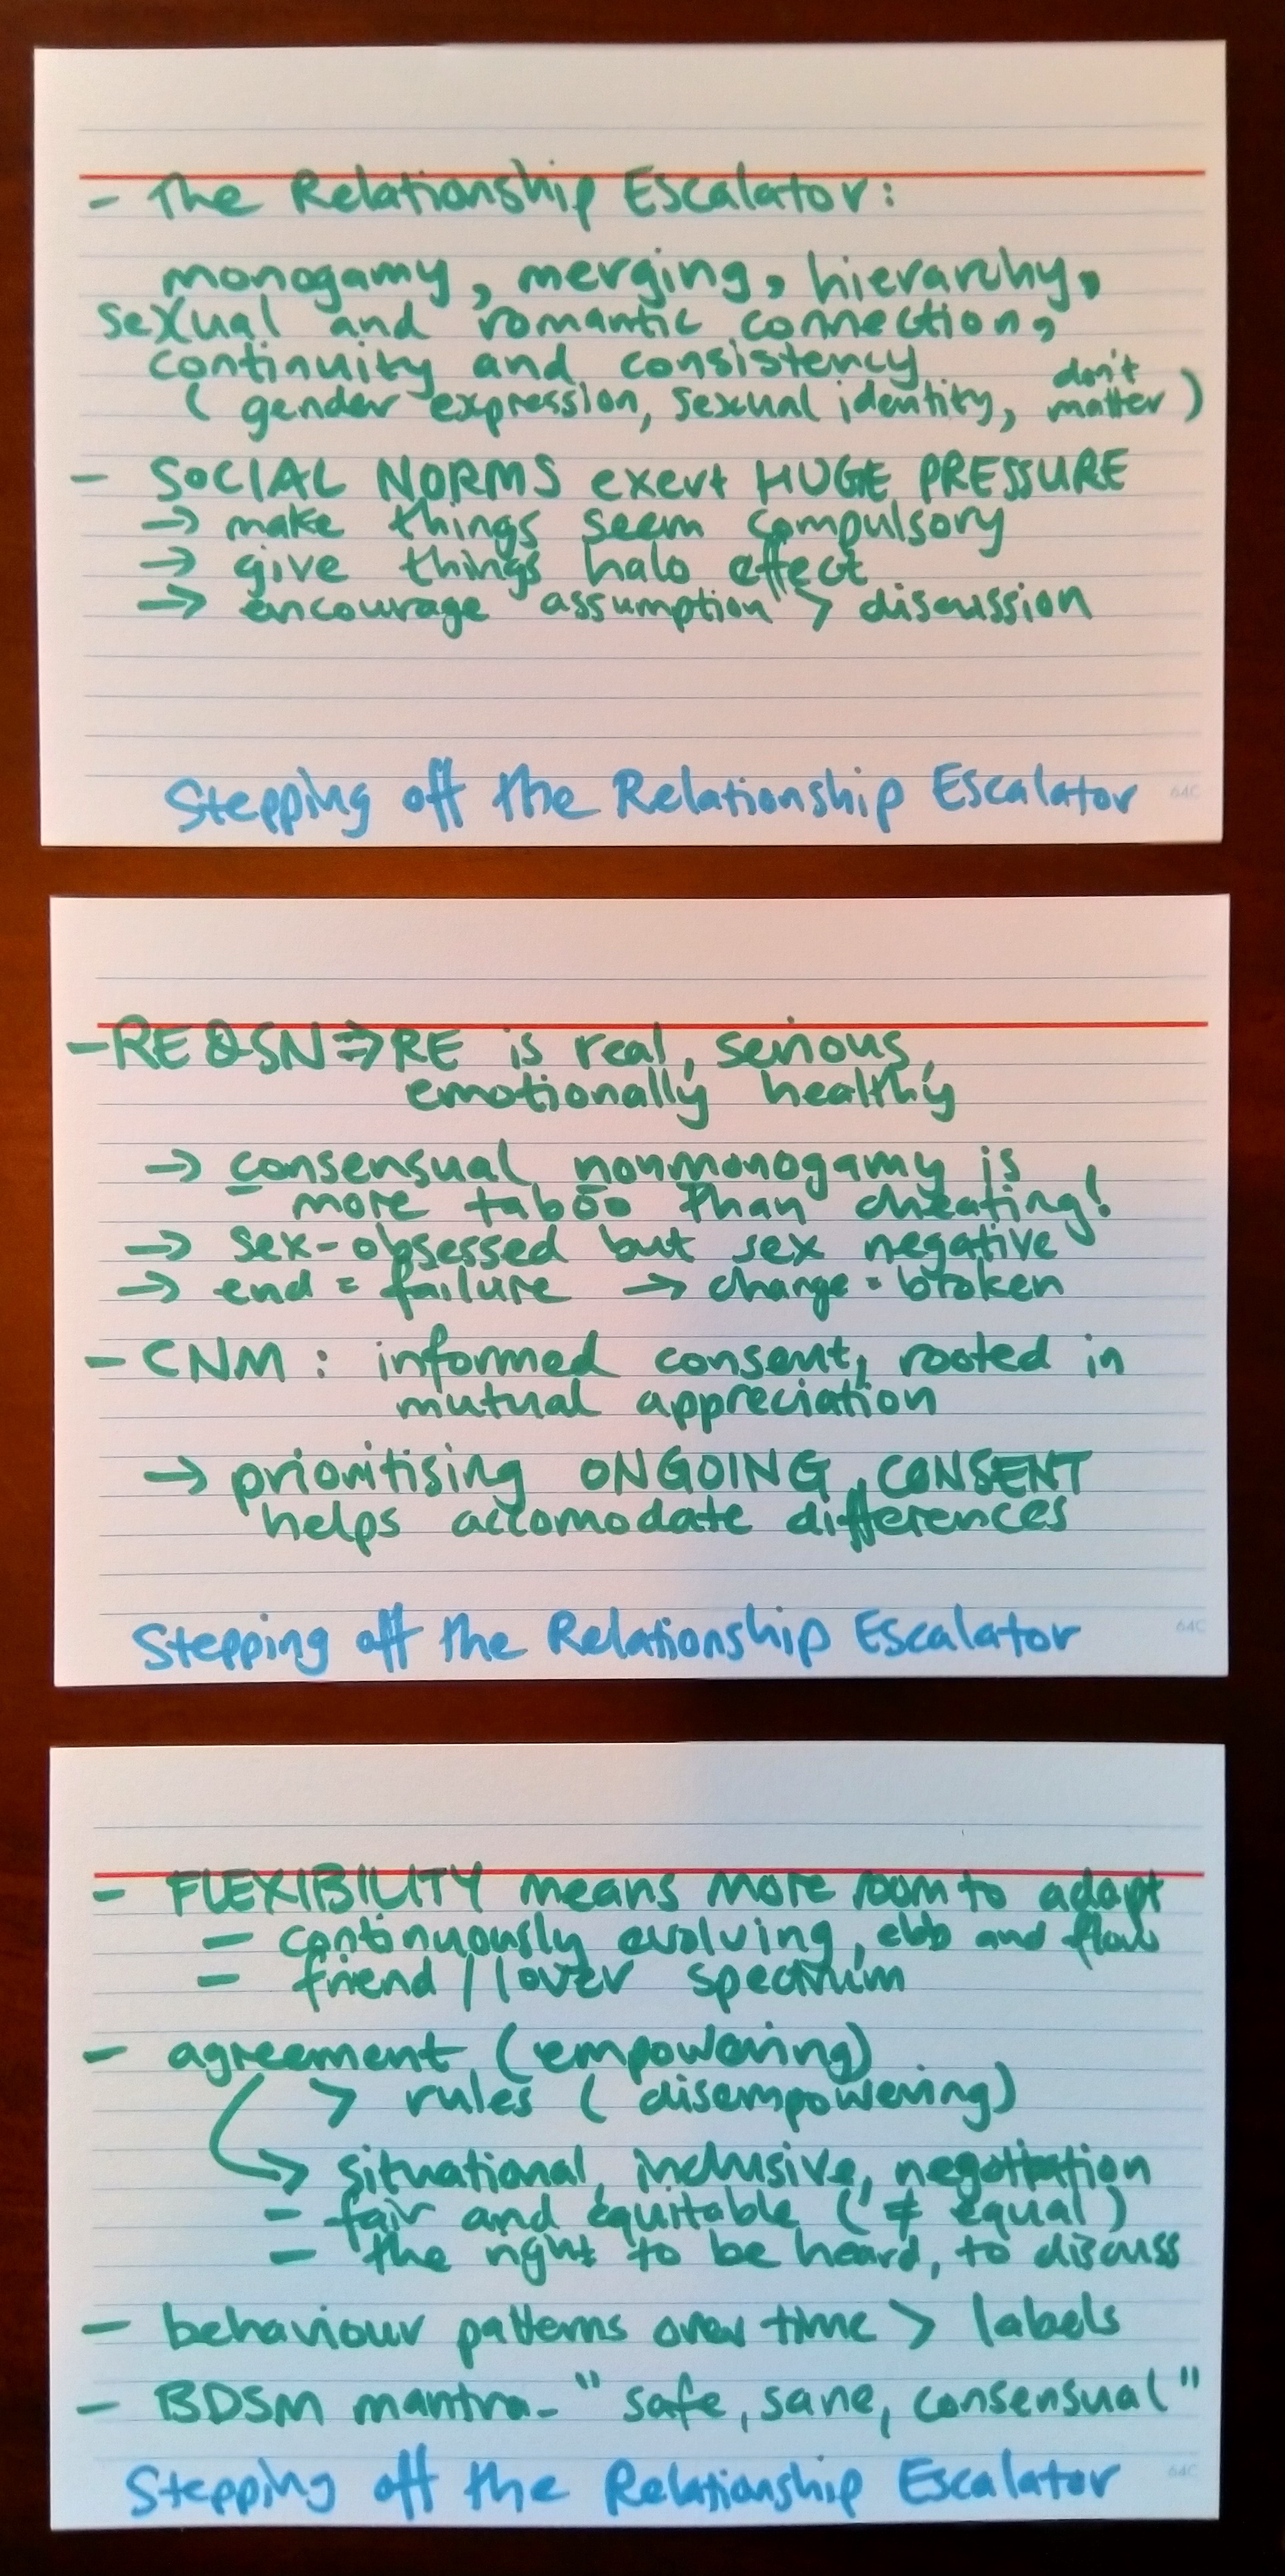 - The Relationship Escalator:
monogamy, merging, hierarchy,
sexual and romantic connection,
continuity and consistency
(gender expression, sexual identity, don't matter)
- SOCIAL NORMS exert HUGE PRESSURE
→ make things seem compulsory
→ give things halo effect
→ encourage assumption > discussion
Stepping off the Relationship Escalator
64C
- RE & SN ⇒ RE is real, serious,
emotionally healthy
→ consensual nonmonogamy is
more taboo than cheating!
→ sex-obsessed but sex negative
→ end = failure → change = broken
- CNM: informed consent, rooted in
mutual appreciation
→ prioritising ONGOING CONSENT
helps accomodate differences
Stepping off the Relationship Escalator
64C
- FLEXIBILITY means more room to adapt
- continuously evolving, ebb and flow
- friend/lover spectrum
- agreement (empowering)
> rules (disempowering)
→ situational, inclusive, negotiation
- fair and equitable (≠ equal)
- the right to be heard, to discuss
- behaviour patterns over time > labels
- BDSM mantra - "safe, sane, consensual"
Stepping off the Relationship Escalator
64C